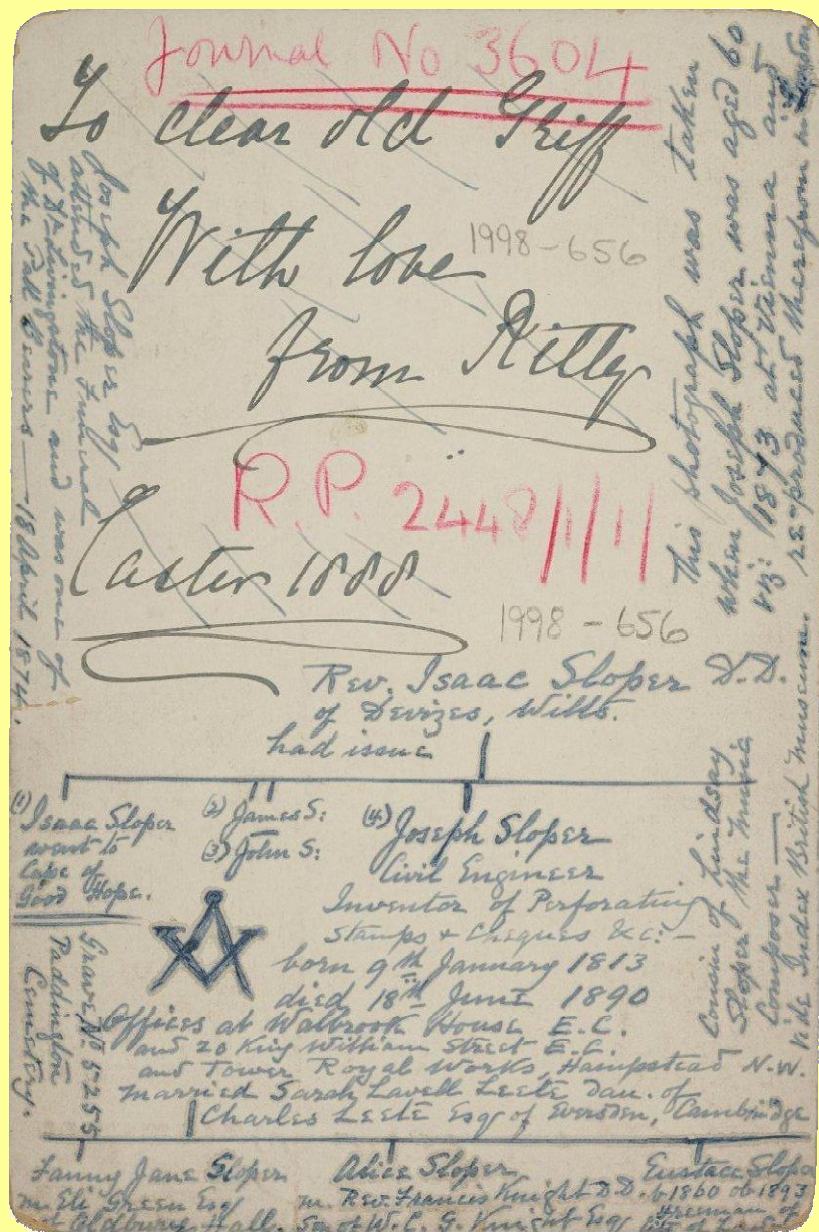 Journal No 3604
To dear old Griff
With love
1998-656
from Kitty
R.P. 2448/1/1/1
Easter 1888
1998-656
Joseph Sloper Esq
attended the Funeral
of Dr Livingstone and was one of
the Pall Bearers — 18 April 1874.
This photograph was taken
when Joseph Sloper was aged 60
viz: 1873 at Vienna and
re-produced therefrom in London
Rev. Isaac Sloper D.D.
of Devizes, Wilts.
had issue
(1) Isaac Sloper
went to
Cape of
Good Hope.
(2) James S:
(3) John S:
(4) Joseph Sloper
Civil Engineer
Inventor of Perforating
Stamps & Cheques &c: -
born 9th January 1813
died 18th June 1890
Offices at Walbrook House E.C.
and 20 King William Street E.C.
and Tower Royal Works, Hampstead N.W.
married Sarah Lavell Leete Dau. of
Charles Leete Esq of Eversden, Cambridge
Grave No 5255
Paddington
Cemetery.
Cousin of Lindsay
Sloper the music
Composer —
Vide Index British Museum.
Fanny Jane Sloper
m. Eli Green Esq
of Aldbury Hall.
Alice Sloper
m. Rev. Francis Knight D.D.
Son of W. C. G. Knight Esq
Eustace Sloper
b 1860 ob 1893
Freeman of